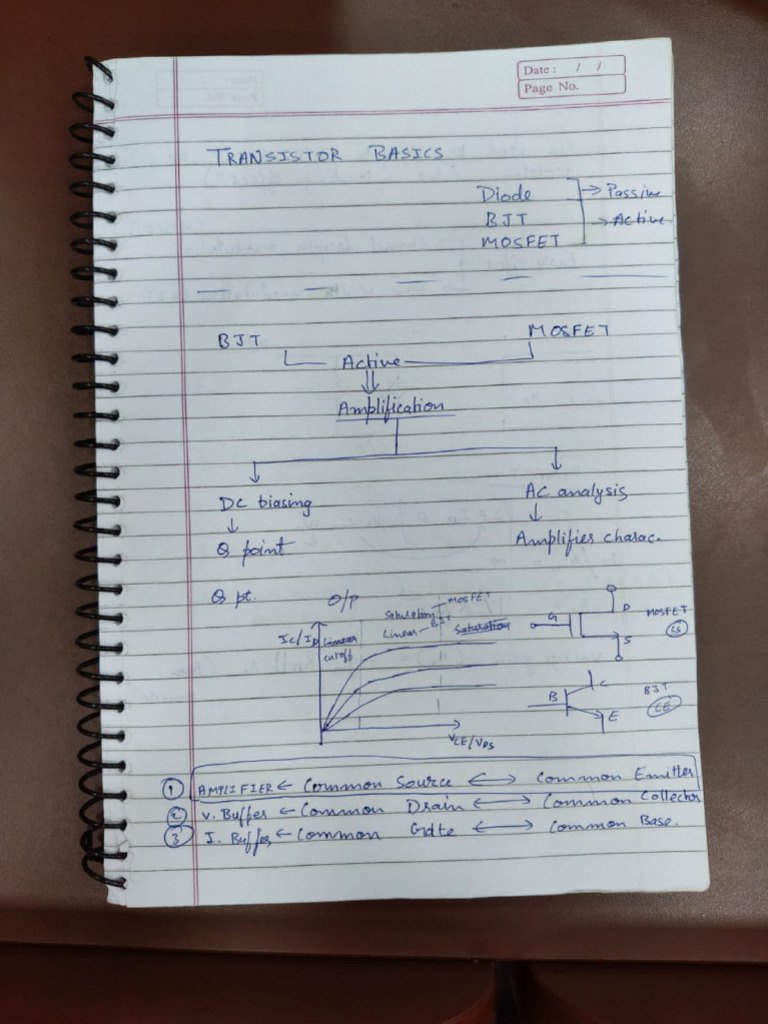 Date : / /
Page No.
TRANSISTOR BASICS
Diode → Passive
BJT → Active
MOSFET
BJT MOSFET
Active
Amplification
DC biasing AC analysis
↓ ↓
Q point Amplifies charac.
Q pt. O/P
MOSFET
Saturation
BJT
Linear
Saturation
IC/ID
Linear
cutoff
VCE/VDS
G D S
MOSFET
CS
B C E
BJT
CE
① AMPLIFIER ← Common Source ↔ Common Emitter
② V. Buffer ← Common Drain ↔ Common Collector
③ I. Buffer ← Common Gate ↔ Common Base.